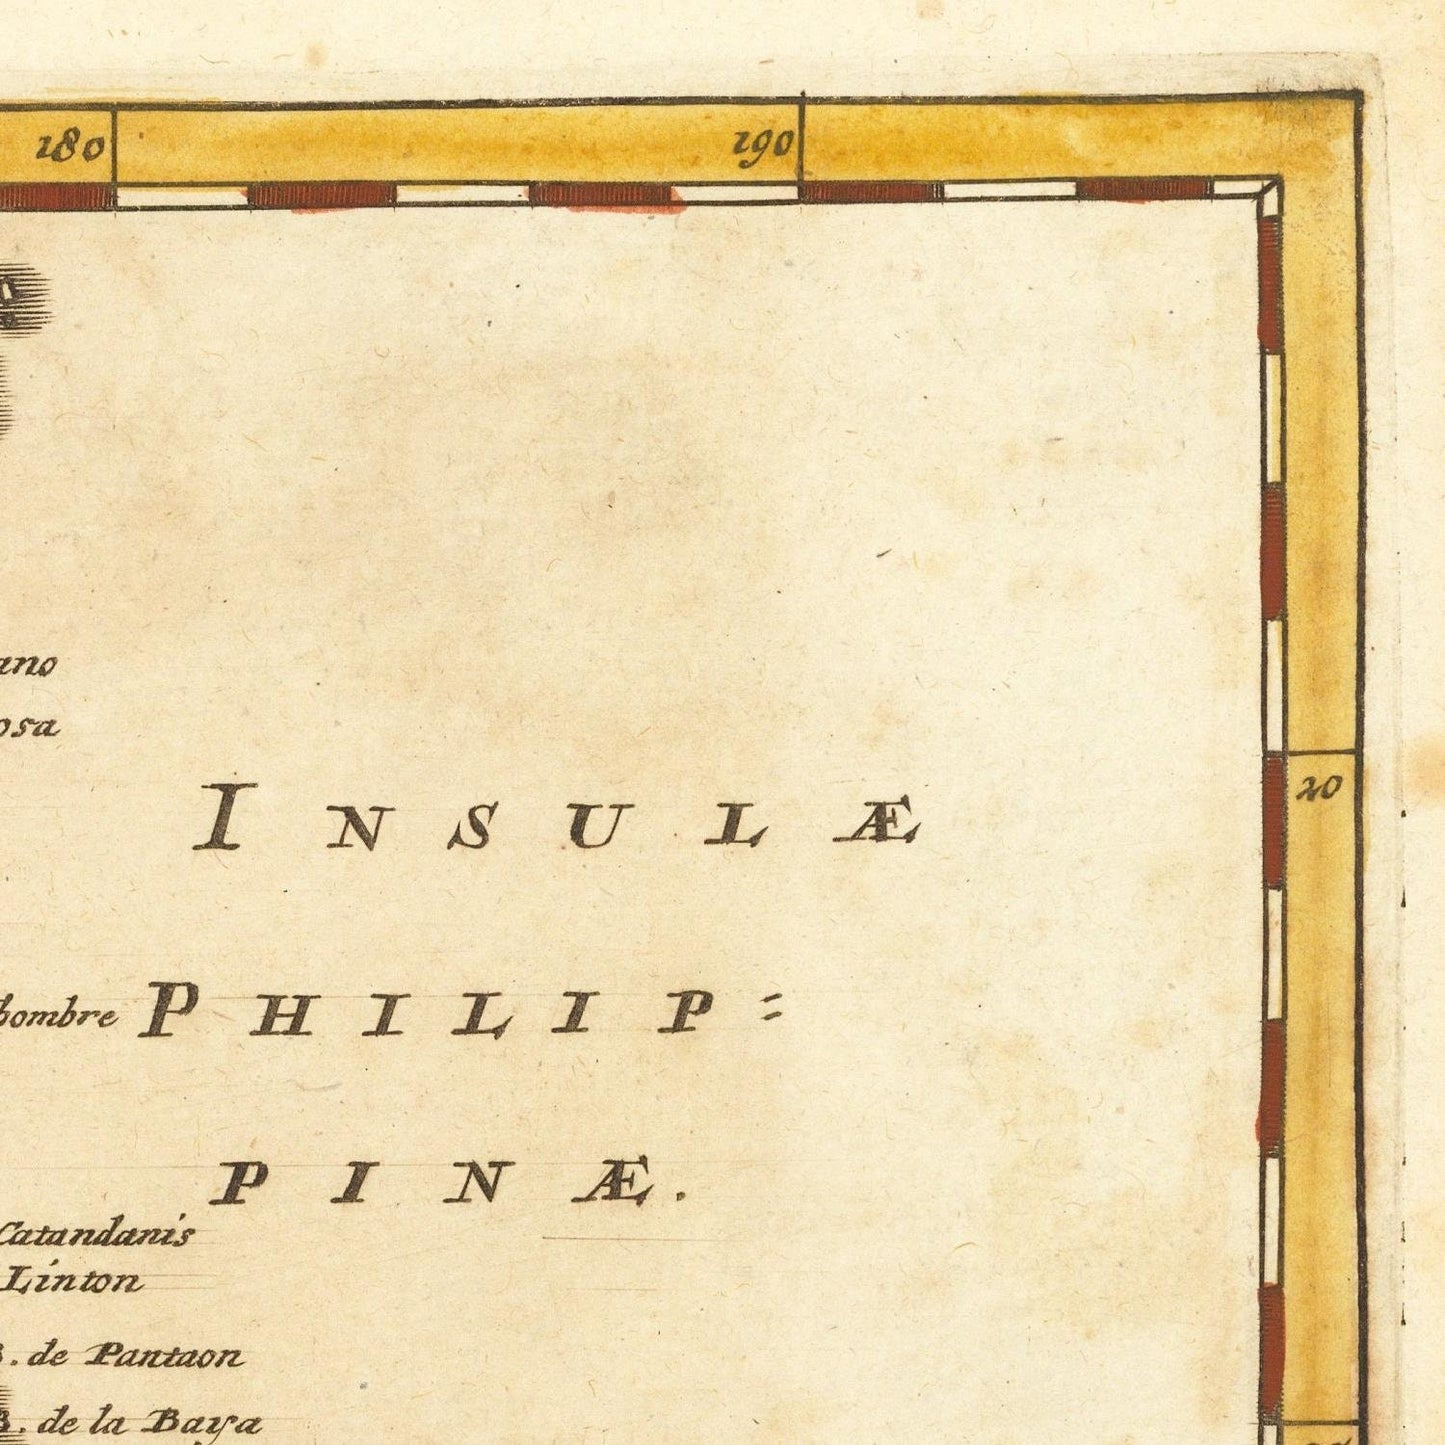 180
190
20
INSULÆ
bombre
PHILIP=
PINÆ.
Catandanis
Linton
de Pantaon
B. de la Baya